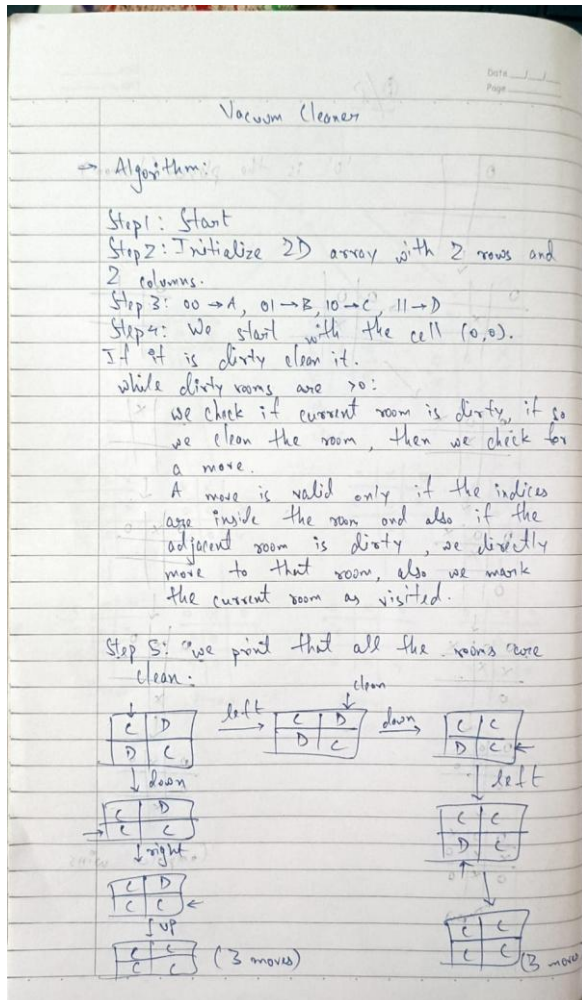 Date
Page
Vacuum Cleaner
→ Algorithm:
Step1: Start
Step2: Initialize 2D array with 2 rows and
2 columns.
Step 3: 00 → A, 01 → B, 10 → C, 11 → D
Step 4: We start with the cell (0,0).
If it is dirty clean it.
while dirty rooms are >0:
we check if current room is dirty, if so
we clean the room, then we check for
a move.
A move is valid only if the indices
are inside the room and also if the
adjacent room is dirty, we directly
move to that room, also we mark
the current room as visited.
Step 5: we print that all the rooms are
clean.
clean
C D left C D down C C
D C D C D C
↓ down ↓ left
C D C C
C C D C
↓ right
C D
C C
↓ UP
C C (3 moves) C C
C C C C (3 moves